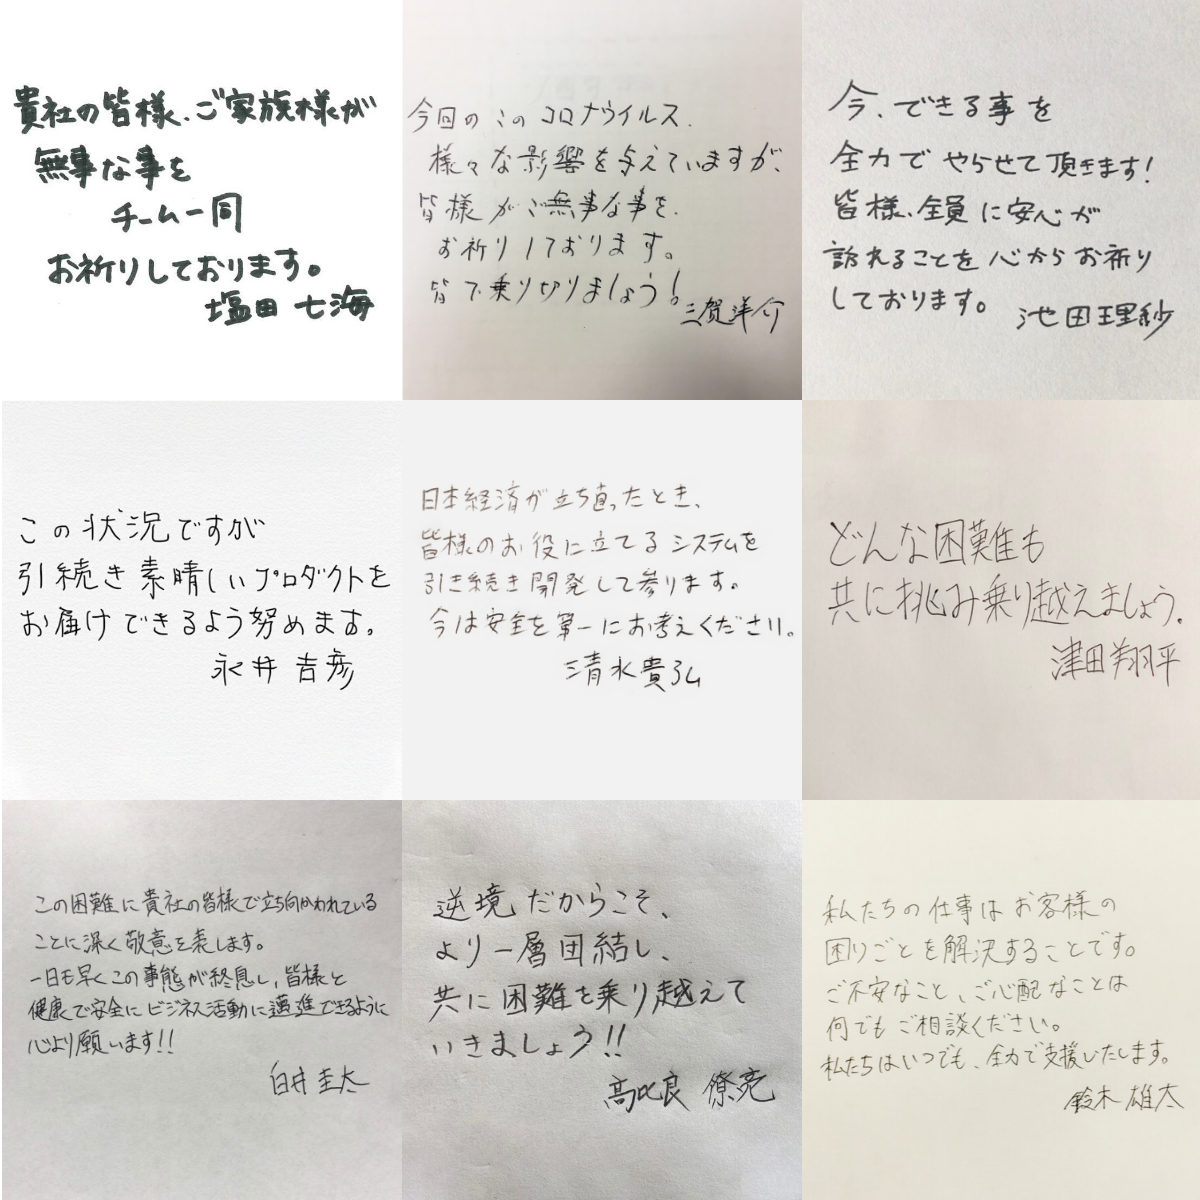 貴社の皆様、ご家族様が
無事な事を
チーム一同
お祈りしております。
塩田 七海
今回のこのコロナウイルス、
様々な影響を与えていますが、
皆様がご無事な事を、
お祈りしております。
皆で乗り切りましょう!
三賀洋介
今、できる事を
全力でやらせて頂きます!
皆様、全員に安心が
訪れることを心からお祈り
しております。
池田理紗
この状況ですが
引続き素晴しいプロダクトを
お届けできるよう努めます。
永井 吉彦
日本経済が立ち直ったとき、
皆様のお役に立てるシステムを
引き続き開発して参ります。
今は安全を第一にお考えください。
清水貴弘
どんな困難も
共に挑み乗り越えましょう。
津田翔平
この困難に貴社の皆様で立ち向かわれている
ことに深く敬意を表します。
一日も早くこの事態が終息し、皆様と
健康で安全にビジネス活動に邁進できるように
心より願います!!
白井 圭太
逆境だからこそ、
より一層団結し、
共に困難を乗り越えて
いきましょう!!
高比良 僚亮
私たちの仕事はお客様の
困りごとを解決することです。
ご不安なこと、ご心配なことは
何でもご相談ください。
私たちはいつでも、全力で支援いたします。
鈴木 雄太